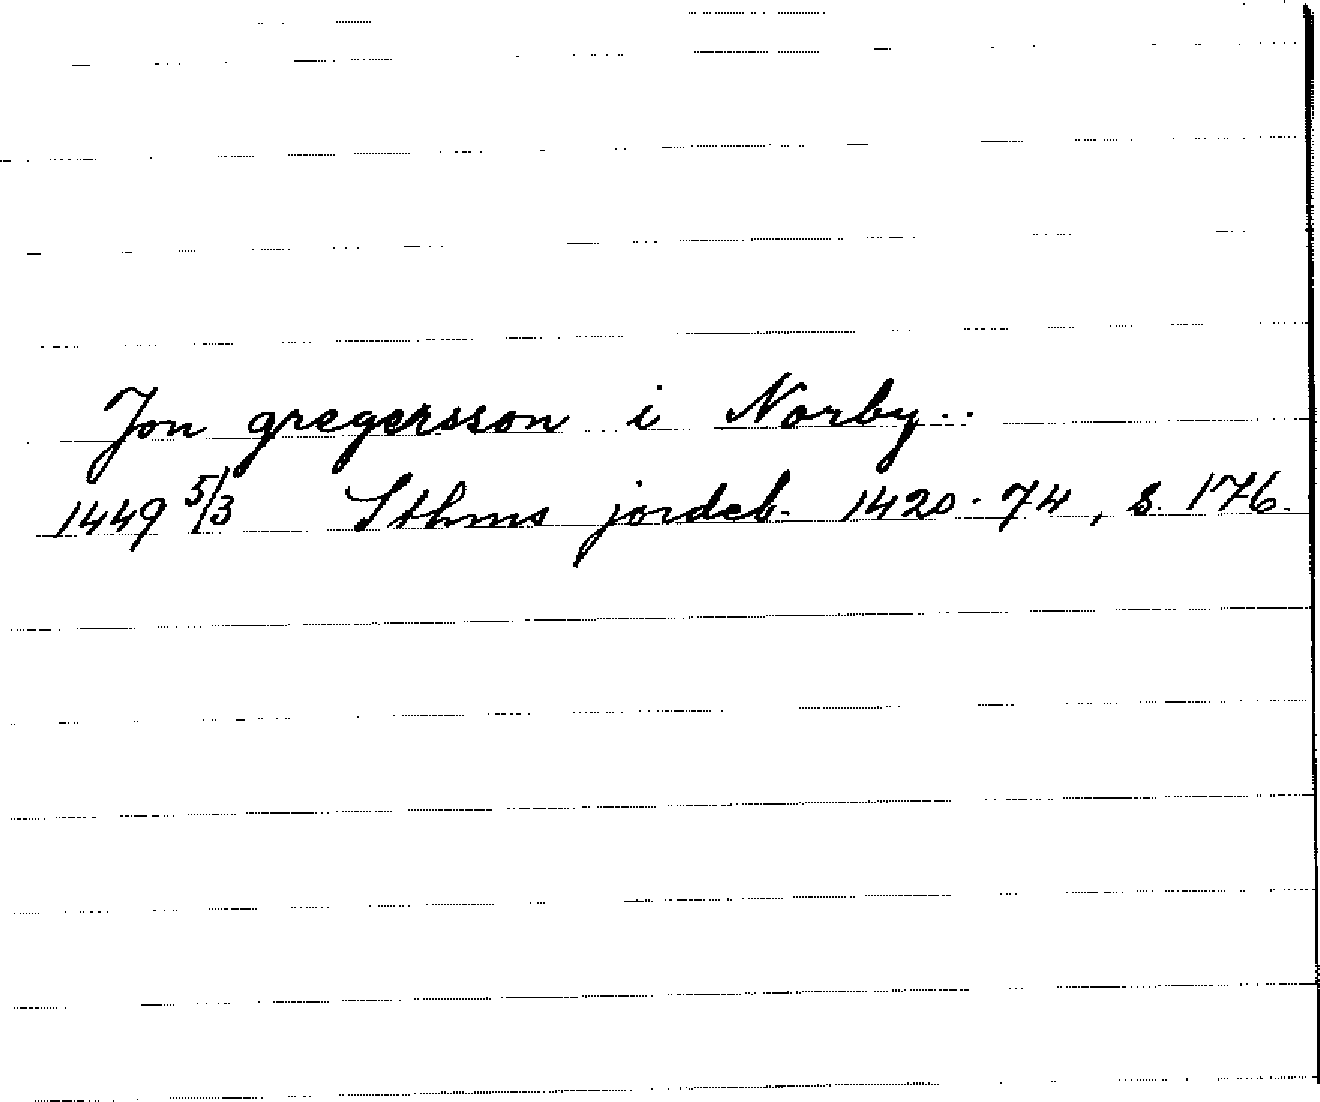 Jon gregersson i Norby..
1449 5/3 Sthms jordeb. 1420-74, s. 176.